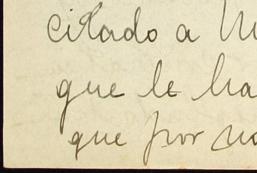 citado a
que le ha
que por no